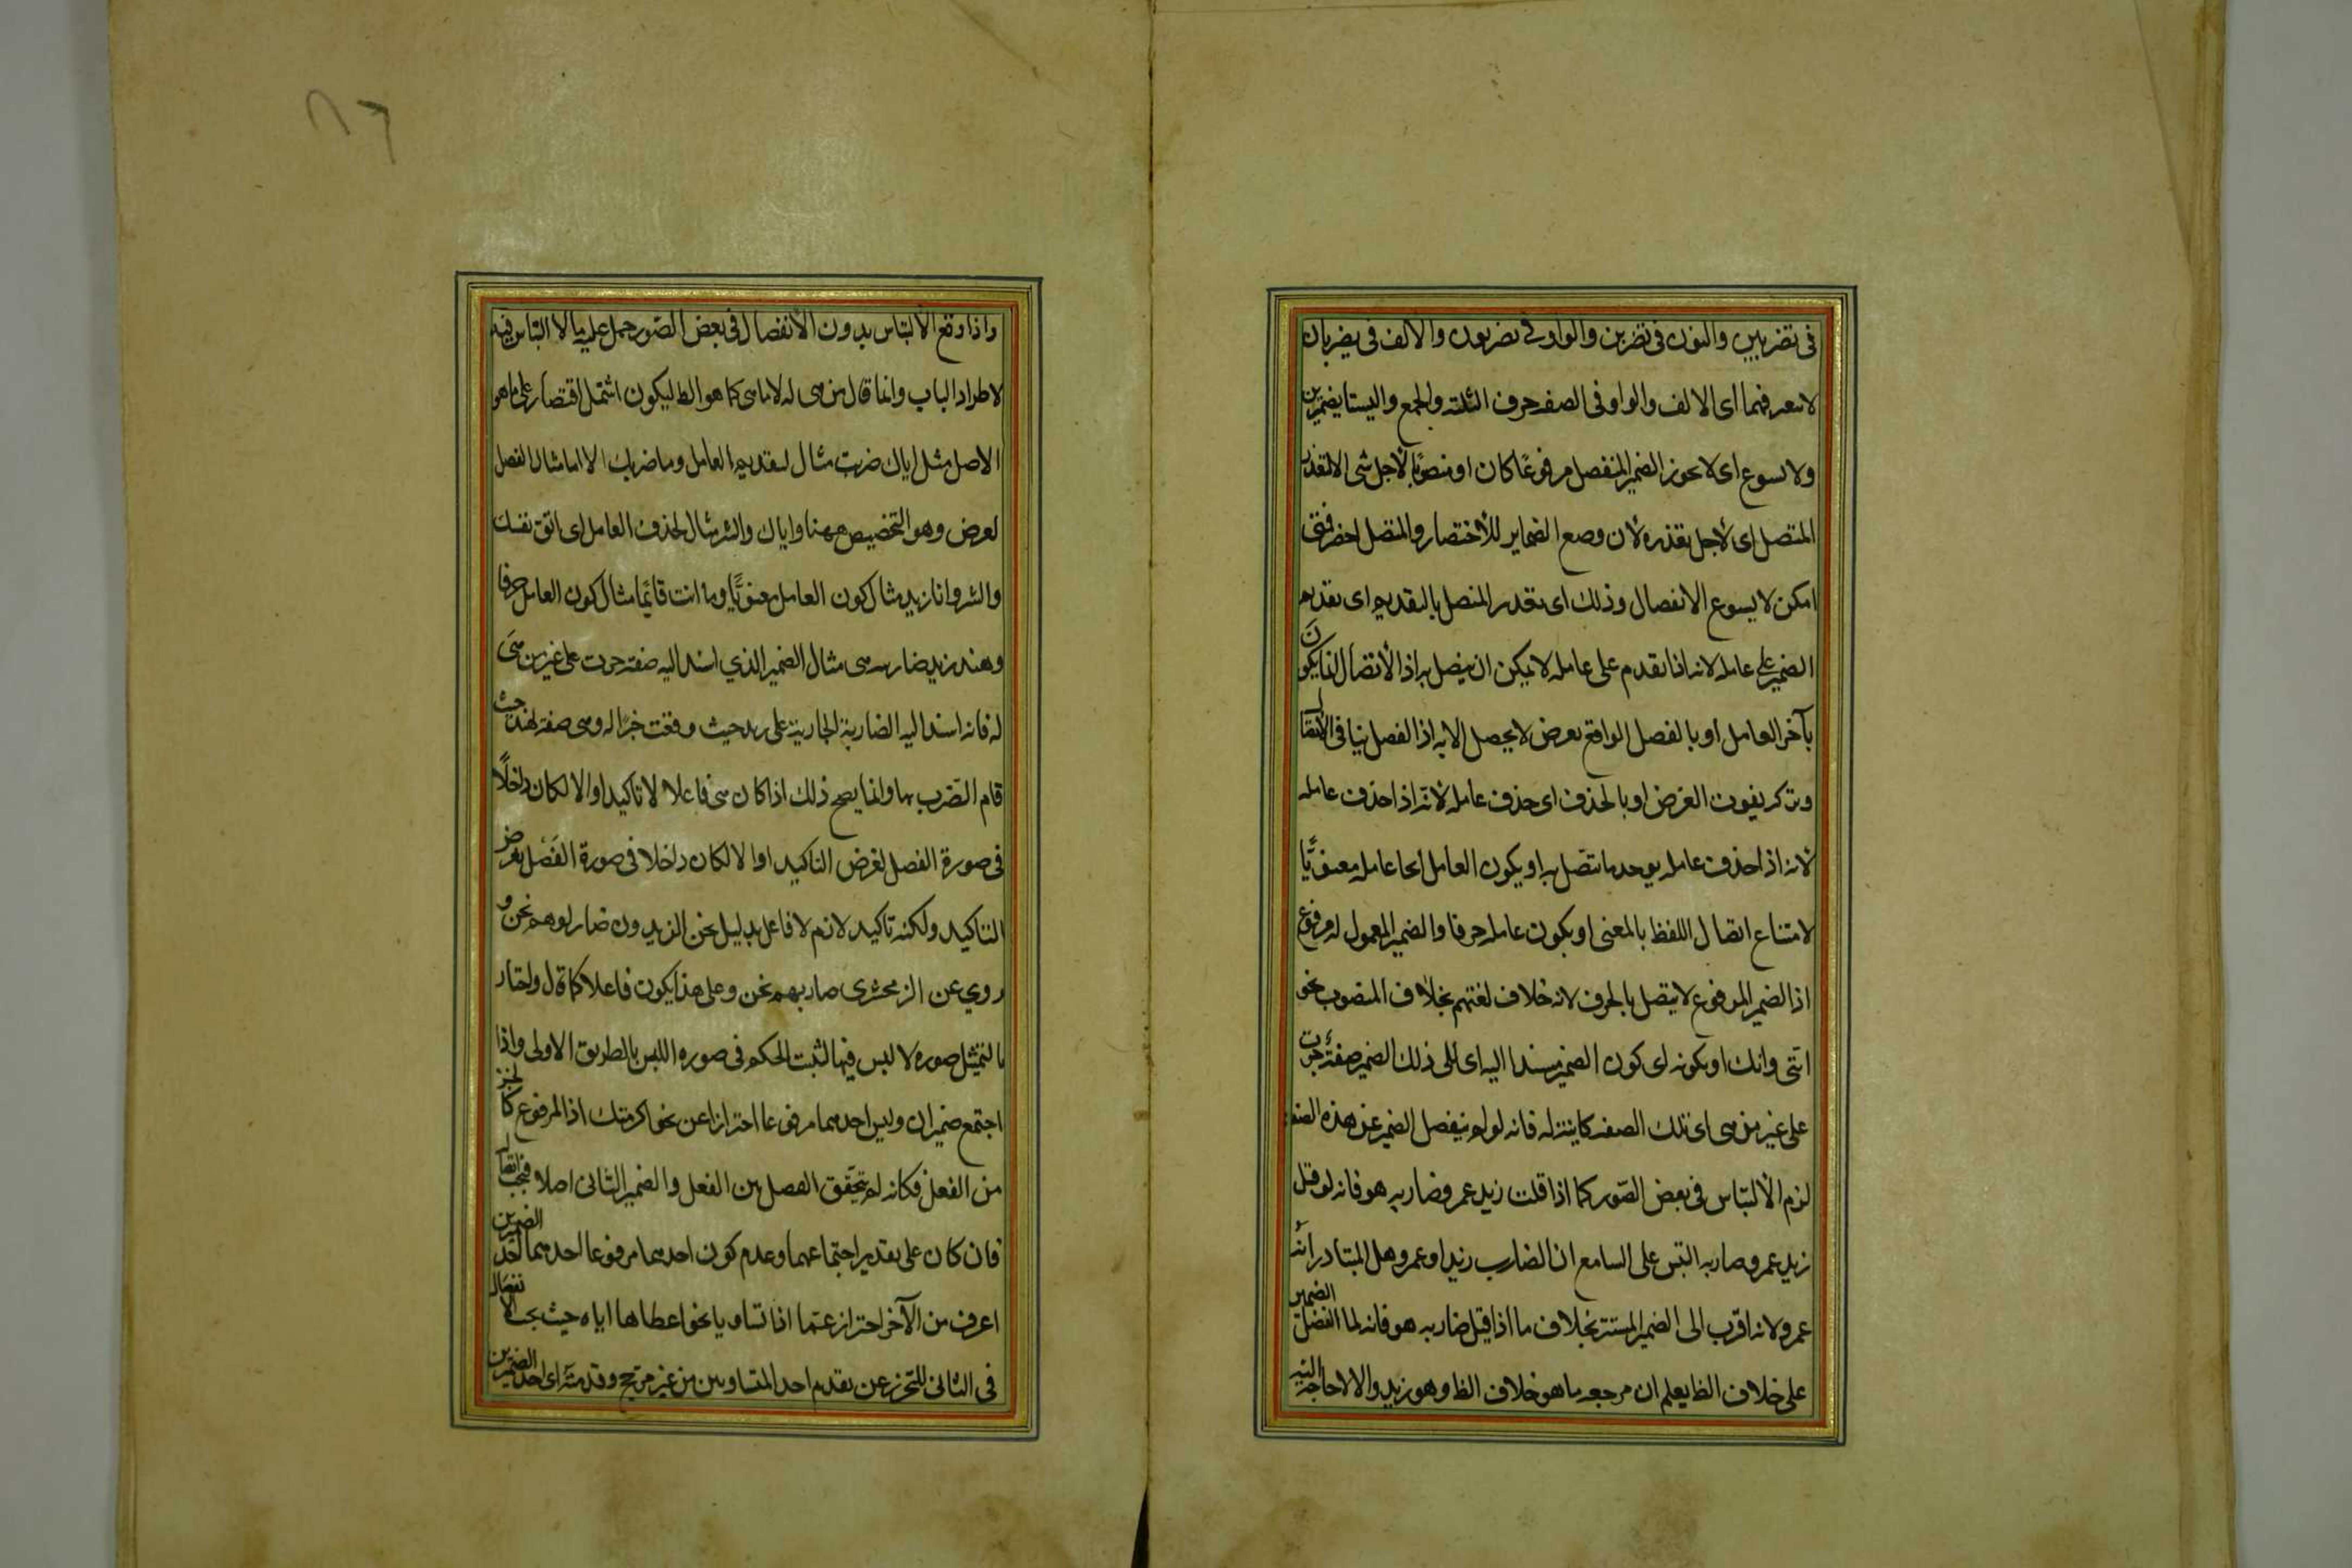 في تضربين والنون في تضربن والواو في تضربون والالف في يضربان
لا سعر فهما اى الالف والواو في الصفه حرف التثنية والجمع وليستا بضميرين
ولا يسوغ اى لا يجوز الضمير المنفصل مرفوعًا كان او منصوبًا لاجل شى الا لتعذر
المتصل اى لاجل تعذره لان وضع الضماير للاختصار والمتصل اخصر فمتى
امكن لا يسوغ الانفصال وذلك اى تعذر المتصل بالتقديم اى تقديم
الضمير على عامله لانه اذا تقدم على عامله لا يمكن ان يتصل به اذ الاتصال انما يكون
بآخر العامل او بالفصل الواقع لغرض لا يحصل الا به اذ الفصل ينافى الاتصال
وتركه يفوت الغرض او بالحذف اى حذف عامله لانه اذا حذف عامله
لانه اذا حذف عامله يوجد ما يتصل به او يكون العامل اى عامله معنويًّا
لامتناع اتصال اللفظ بالمعنى او بكون عامله حرفا والضمير المعمول له مرفوع
اذ الضمير المرفوع لا يتصل بالحرف لانه خلاف لغتهم بخلاف المنصوب نحو
انني وانك او بكونه اى كون الضمير مسندا اليه اى الى ذلك الضمير صفة جرت
على غير من هى اى تلك الصفه كاينة له فانه لو لم ينفصل الضمير عن هذه الصفة
لزم الالتباس في بعض الصور كما اذا قلت زيد عمرو ضاربه هو فانه لو قيل
زيد عمرو ضاربه التبس على السامع ان الضارب زيد او عمرو هل المتبادر انه
عمرو لانه اقرب الى الضمير المستتر بخلاف ما اذا قيل ضاربه هو فانه لما انفصل الضمير
على خلاف الظ يعلم ان مرجعه ما هو خلاف الظ وهو زيد والا لا حاجة اليه
٨٦
واذا وقع الالتباس بدون الانفصال في بعض الصور حمل عليه ما لا التباس فيه
لاطراد الباب وانما قال من هى له لا ما هى كما هو الظ ليكون اشمل اقتصار على ما هو
الاصل مثل اياك ضربت مثال لتقديم العامل وما ضربك الا انا مثال الفصل
لغرض وهو التخصيص ههنا واياك والشر مثال لحذف العامل اى اتق نفسك
والشر وانا زيد مثال كون العامل معنويًّا وما انت قائمًا مثال كون العامل حرفا
وهند زيد ضاربته هى مثال الضمير الذي اسند اليه صفة جرت على غير من هى
له فانه اسند اليه الضاربة الجارية على زيد حيث وقعت خبرًا له وهى صفة لهند حيث
قام الضرب بها وانما يصح ذلك اذا كان هى فاعلا لا تاكيدا والا لكان داخلًا
في صورة الفصل لغرض التاكيد اوا لا لكان داخلا في صورة الفصل لغرض
التاكيد ولكنه تاكيد لازم لا فاعل بدليل نحن الزيدون ضاربوهم نحن و
روي عن الزمخشرى ضاربهم نحن وعلى هذا يكون فاعلا كما قال واختار
بالتمثيل صوره لا لبس فيها لثبت الحكم فى صوره اللبس بالطريق الاولى واذا
اجتمع ضميران وليس احدهما مرفوعا احترازا عن نحو اكرمتك اذ المرفوع كالجزء
من الفعل فكانه لم يتحقق الفصل بين الفعل والضمير الثانى اصلا فيجب اتصال
فان كان على تقدير اجتماعهما وعدم كون احدهما مرفوعا احدهما احد الضميرين
اعرف من الآخر احتراز عما اذا تساويا نحو اعطاها اياه حيث يجب الانفصال
فى الثانى للتحرز عن تقديم احد المتساويين من غير مرجح وقدمته اى احد الضميرين